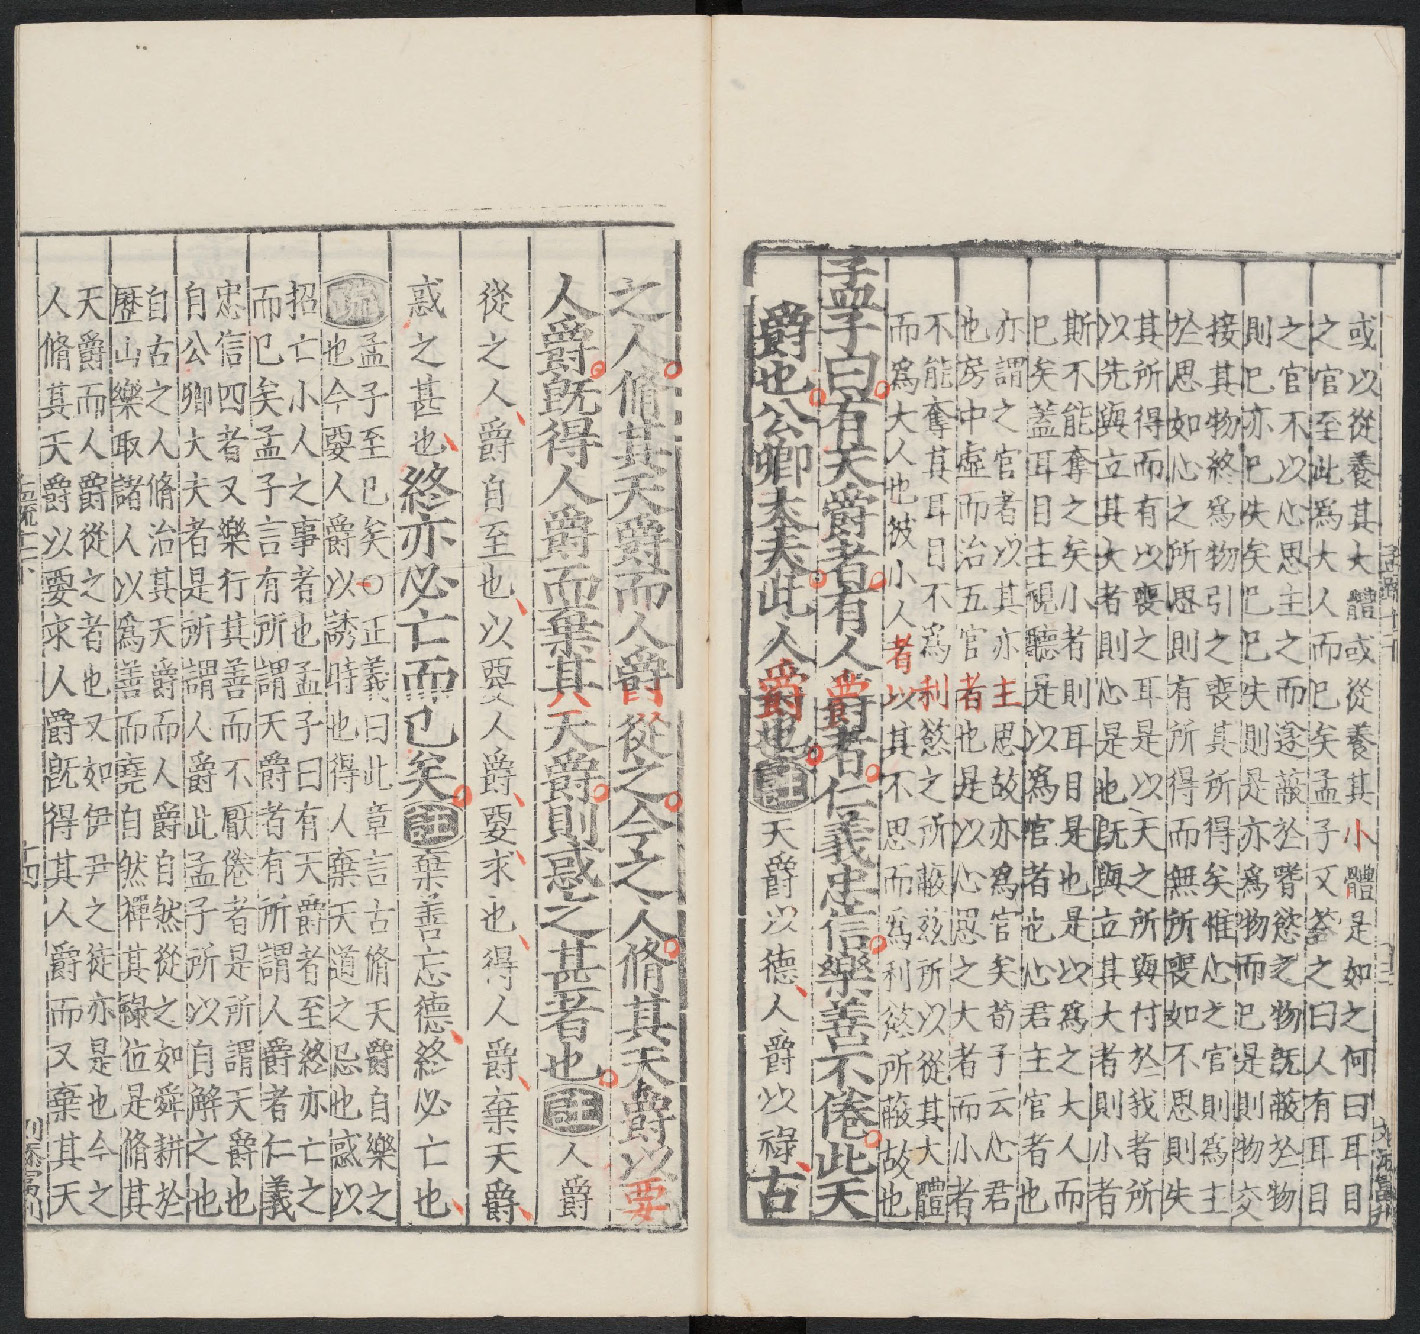 或以從養其大體或從養其小體是如之何曰耳目
之官至此爲大人而已矣孟子又荅之曰人有耳目
之官不以心思主之而遂蔽於嗜慾之物既蔽於物
則已亦已失矣已已失則是亦爲物而已是則物交
接其物終爲物引之喪其所得矣惟心之官則爲主
於思如心之所思則有所得而無所喪如不思則失
其所得而有以喪之耳是以天之所與付於我者所
以先與立其大者則心是也既與立其大者則小者
斯不能奪之矣小者則耳目是也是以爲之大人而
已矣蓋耳目主視聽是以爲官者也心君主官者也
亦謂之官者以其亦主思故亦爲官矣荀子云心君
也房中虛而治五官者也是以心思之大者而小者
不能奪其耳目不爲利慾之所蔽兹所以從其大體
而爲大人也彼小人者以其不思而爲利慾所蔽故也
孟子曰有天爵者有人爵者仁義忠信樂善不倦此天
爵也公卿大夫此人爵也註天爵以德人爵以祿古
之人脩其天爵而人爵從之今之人脩其天爵以要
人爵既得人爵而棄其天爵則惑之甚者也註人爵
從之人爵自至也以要人爵要求也得人爵棄天爵
惑之甚也終亦必亡而已矣註棄善忘德終必亡也
疏孟子至已矣○正義曰此章言古脩天爵自樂之
也今要人爵以誘時也得人棄天道之忌也惑以
招亡小人之事者也孟子曰有天爵者至終亦亡之
而已矣孟子言有所謂天爵者有所謂人爵者仁義
忠信四者又樂行其善而不厭倦者是所謂天爵也
自公卿大夫者是所謂人爵此孟子所以自解之也
自古之人脩治其天爵而人爵自然從之如舜耕於
歷山樂取諸人以爲善而堯自然禪其祿位是脩其
天爵而人爵從之者也又如伊尹之徒亦是也今之
人脩其天爵以要求人爵既得其人爵而又棄其天